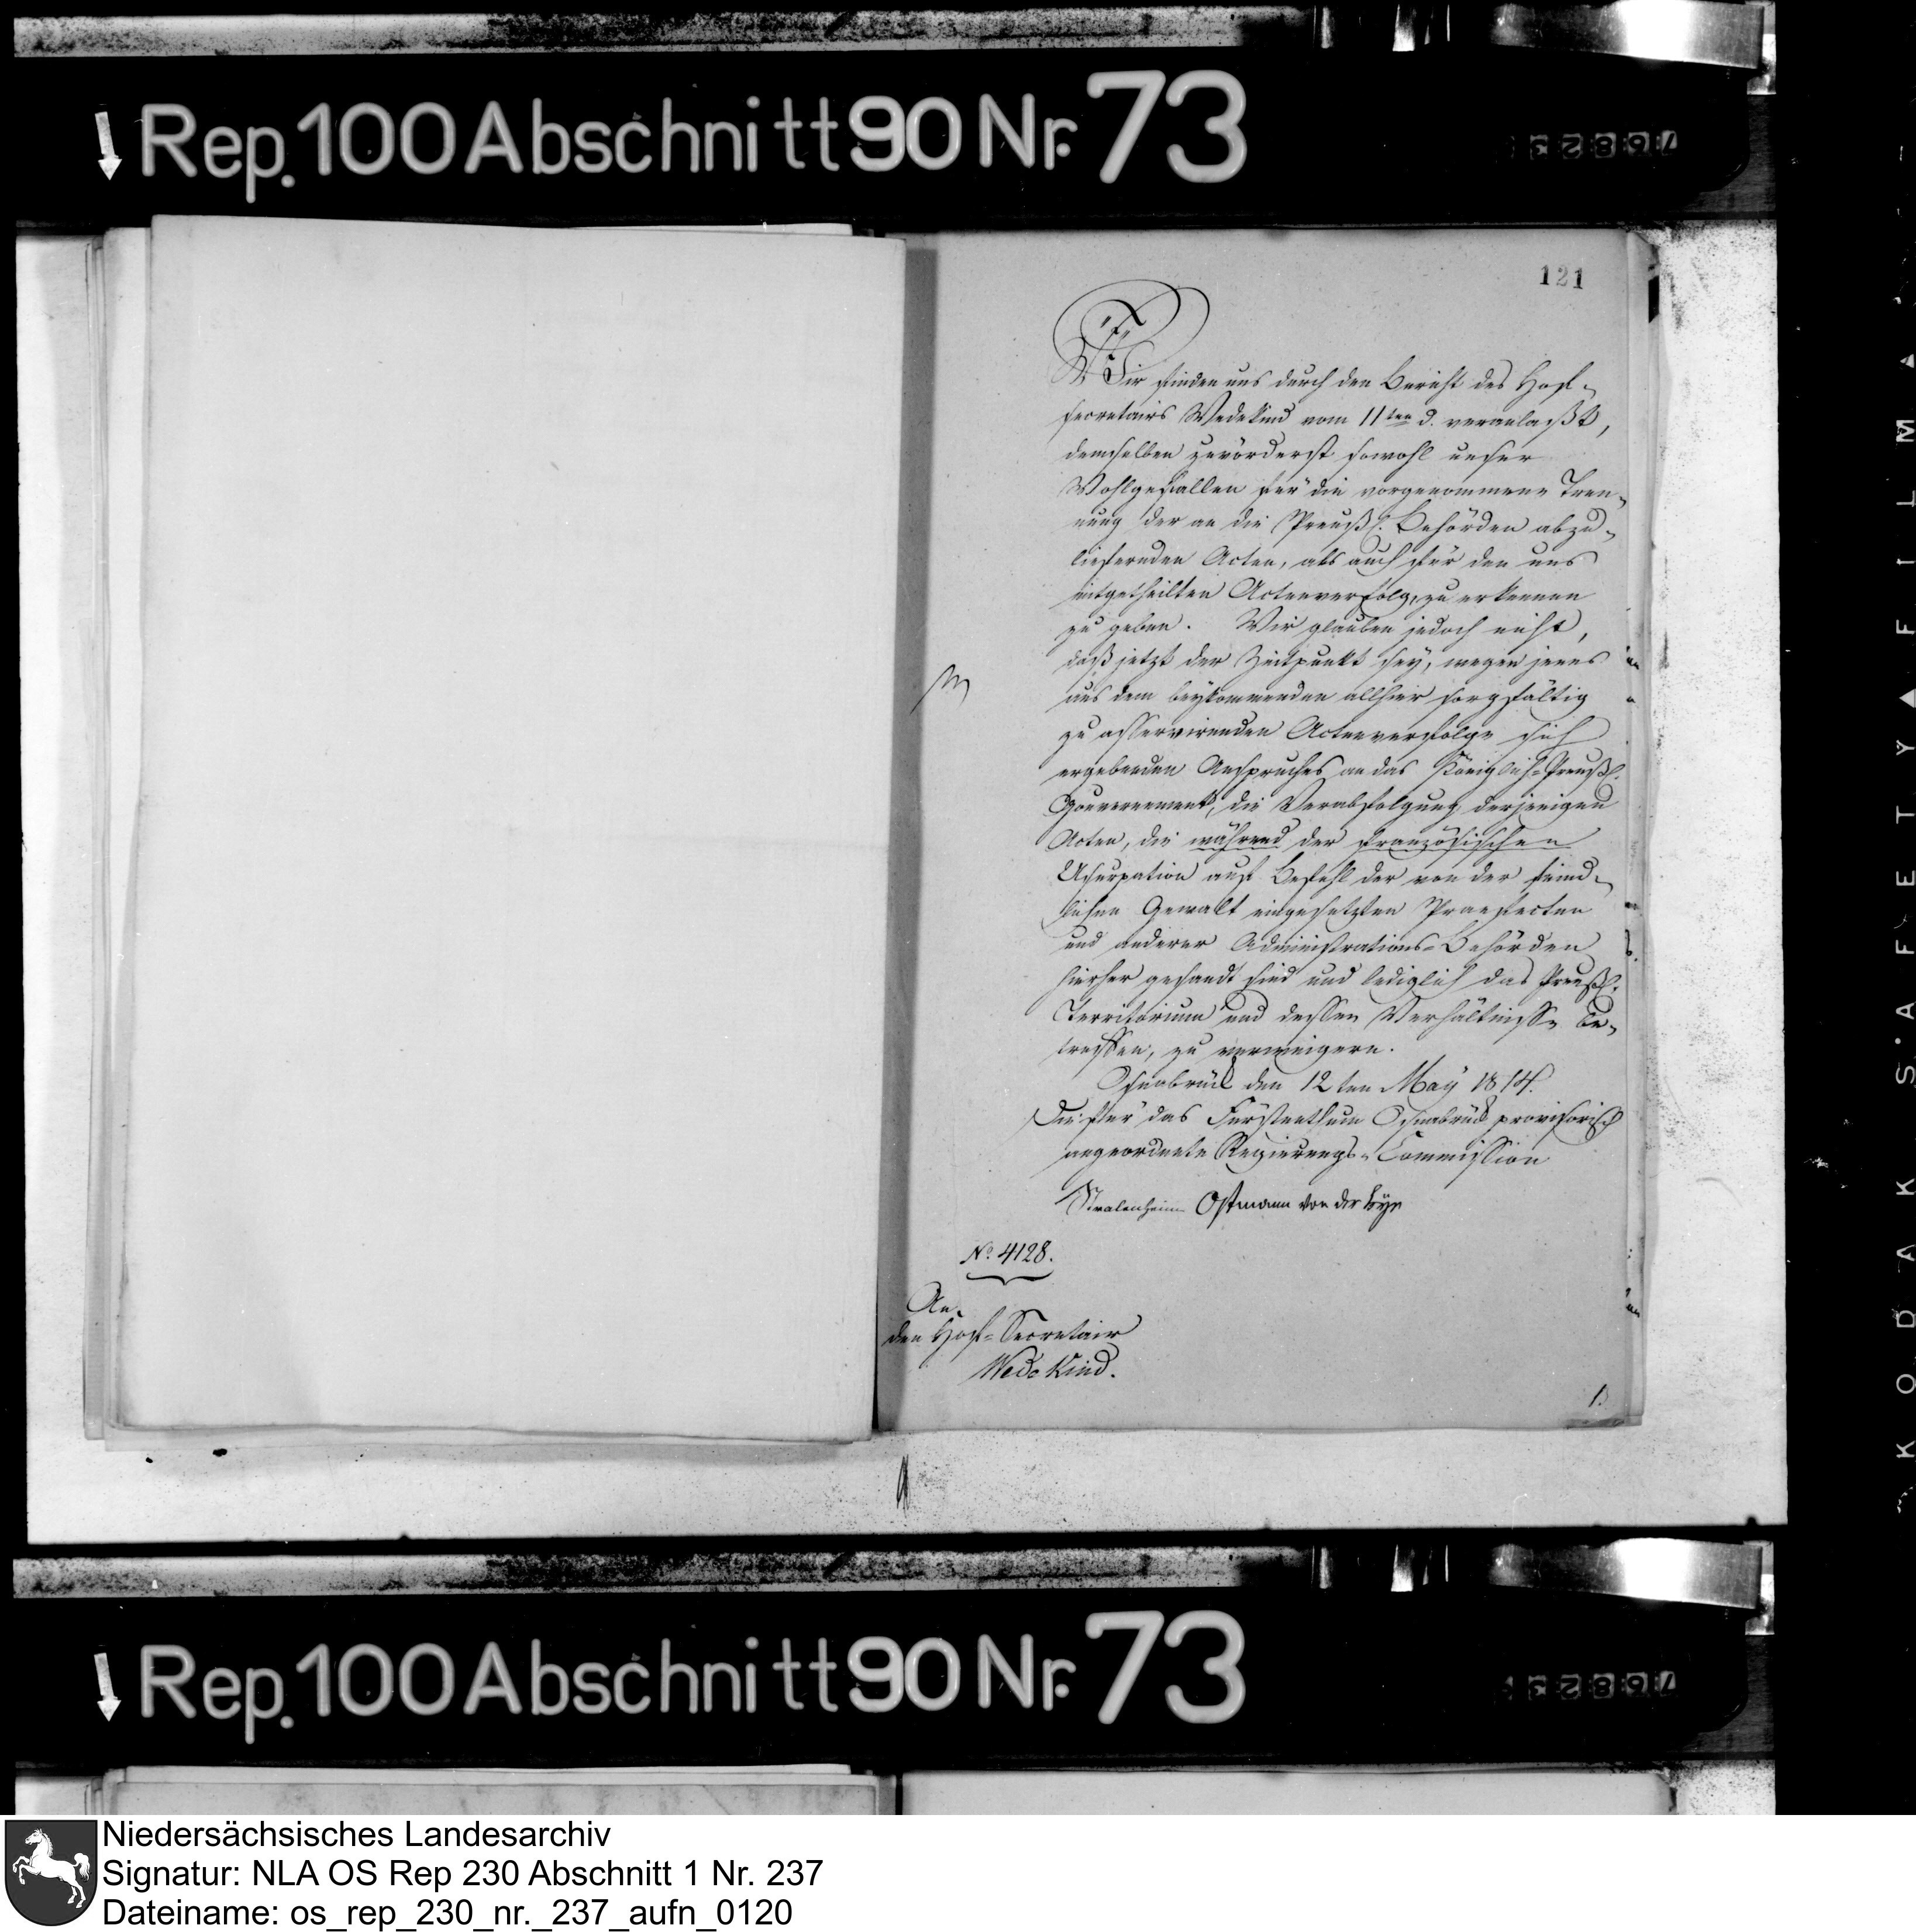 Rep. 100 Abschnitt 90 Nr. 73
76823
121
Wir finden uns durch den Bericht des Hof-
secretairs Wedekind vom 11ten d. veranlaßt,
demselben zuvörderst sowohl unser
Wohlgefallen für die vorgenommene Tren-
nung der an die Preußl. Behörden abzu-
liefernden Acten, als auch für den uns
mitgetheilten Actenverfolg, zu erkennen
zu geben. Wir glauben jedoch nicht,
daß jetzt der Zeitpunkt sey, wegen jenes
aus dem beykommenden allhier sorgfältig
zu asservirenden Actenverfolge sich
ergebenden Anspruches an das Königlich-Preußl.
Gouvernement, die Verabfolgung derjenigen
Acten, die während der französischen
Usurpation auf Befehl der von der feind-
lichen Gewalt eingesetzten Praefecten
und anderer Administrations-Behörden
hierher gesandt sind und lediglich das Preußl.
Territorium und dessen Verhältnisse be-
treffen, zu verweigern.
Osnabrück den 12ten May 1814.
Die für das Fürstenthum Osnabrück provisorisch
angeordnete Regierungs-Commission
Stralenheim Ostmann von der Leye
No. 4128.
An
den Hof-Secretair
Wedekind.
Rep. 100 Abschnitt 90 Nr. 73
76823
KODAK SAFETY FILM
Niedersächsisches Landesarchiv
Signatur: NLA OS Rep 230 Abschnitt 1 Nr. 237
Dateiname: os_rep_230_nr._237_aufn_0120